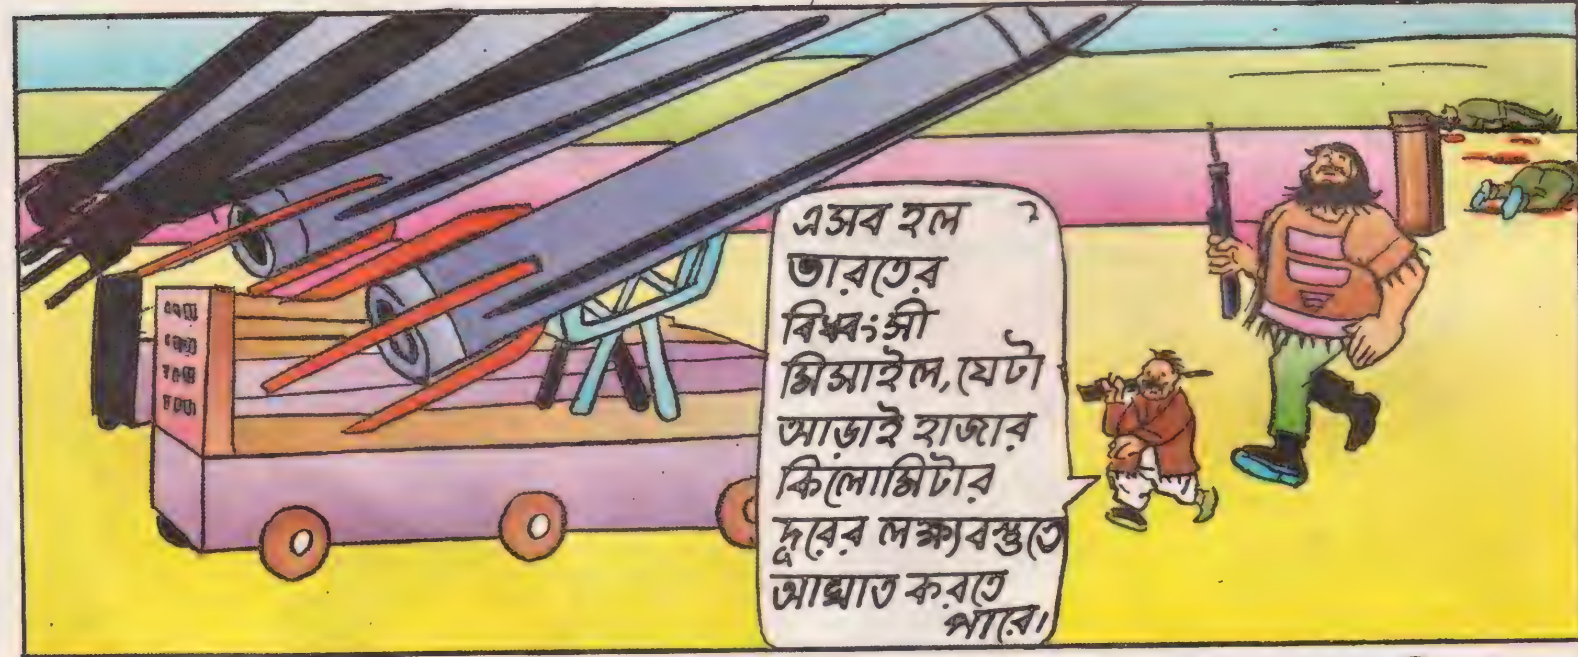 এসব হল
ভারতের
বিধ্বংসী
মিসাইল, যেটা
আড়াই হাজার
কিলোমিটার
দূরের লক্ষ্যবস্তুতে
আঘাত করতে
পারে।